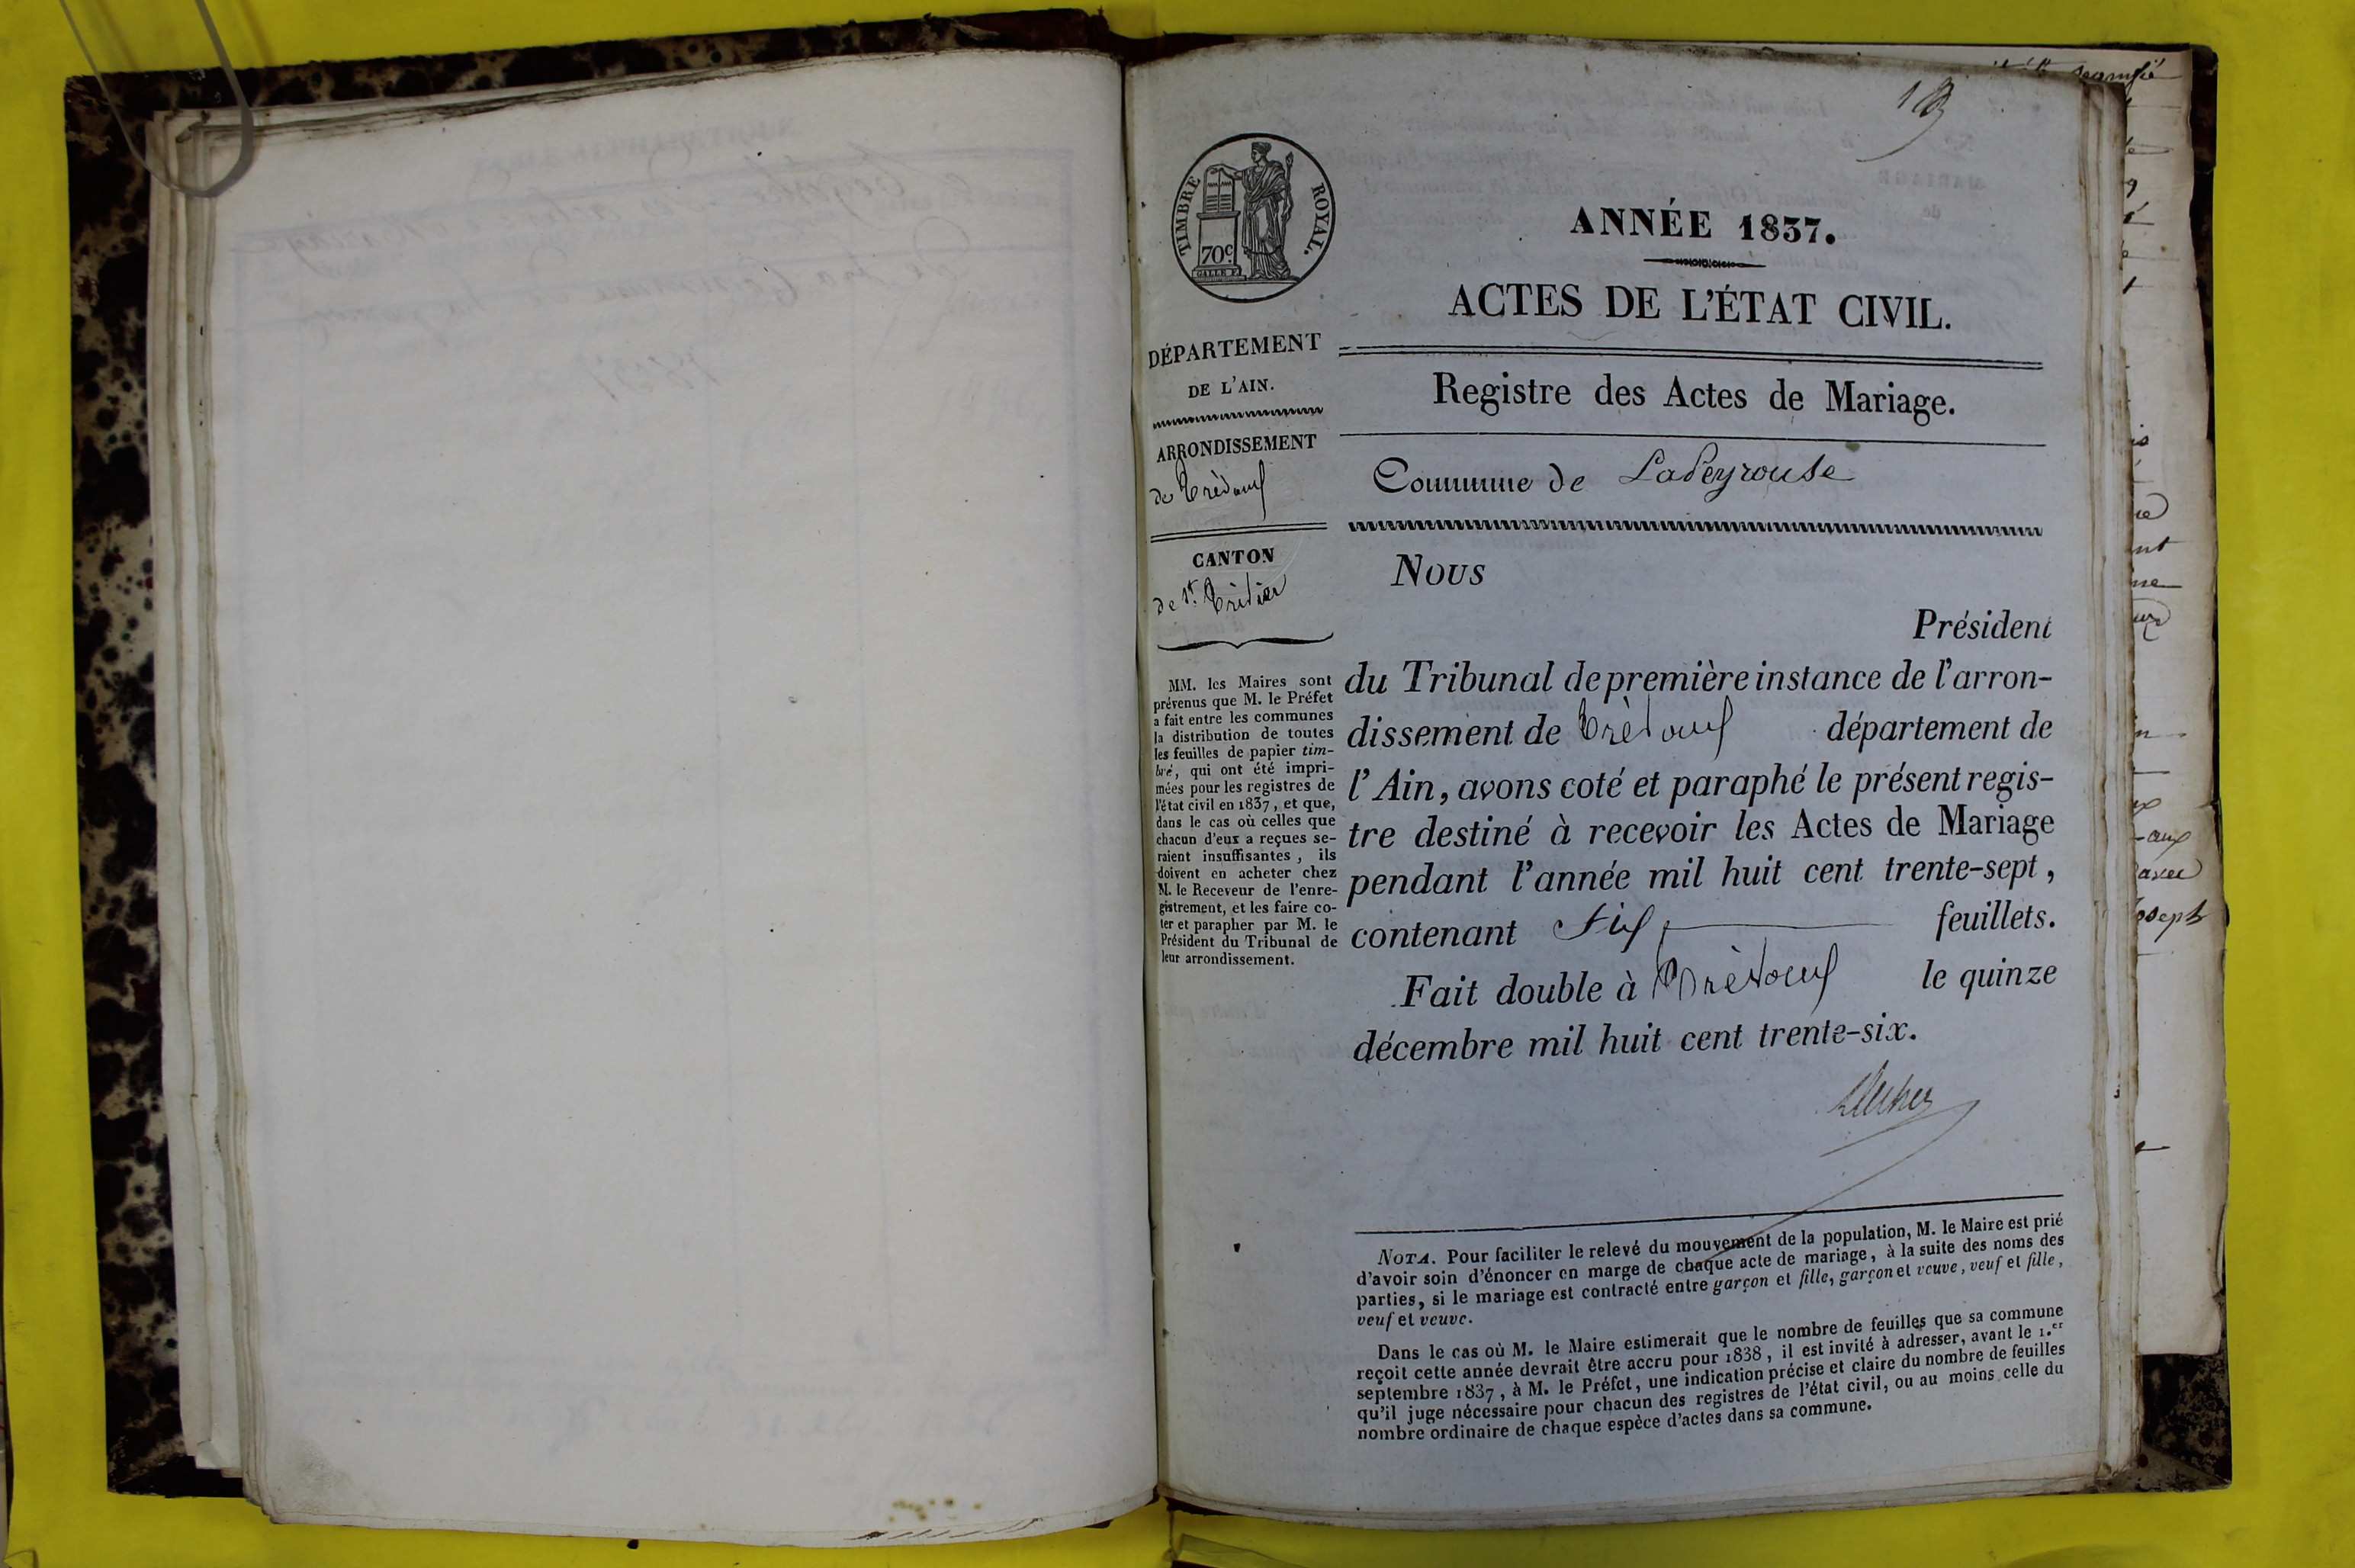 TIMBRE ROYAL.
70c
GALLE F.
DÉPARTEMENT
DE L'AIN.
ARRONDISSEMENT
de Trévoux
CANTON
de St. Trivier
MM. les Maires sont
prévenus que M. le Préfet
a fait entre les communes
la distribution de toutes
les feuilles de papier tim-
bré, qui ont été impri-
mées pour les registres de
l'état civil en 1837, et que,
dans le cas où celles que
chacun d'eux a reçues se-
raient insuffisantes, ils
doivent en acheter chez
M. le Receveur de l'enre-
gistrement, et les faire co-
ter et parapher par M. le
Président du Tribunal de
leur arrondissement.
ANNÉE 1837.
ACTES DE L'ÉTAT CIVIL.
Registre des Actes de Mariage.
Commune de LaPeyrouse
Nous
Président
du Tribunal de première instance de l'arron-
dissement de Trévoux département de
l'Ain, avons coté et paraphé le présent regis-
tre destiné à recevoir les Actes de Mariage
pendant l'année mil huit cent trente-sept,
contenant Six feuillets.
Fait double à Trévoux le quinze
décembre mil huit cent trente-six.
NOTA. Pour faciliter le relevé du mouvement de la population, M. le Maire est prié
d'avoir soin d'énoncer en marge de chaque acte de mariage, à la suite des noms des
parties, si le mariage est contracté entre garçon et fille, garçon et veuve, veuf et fille,
veuf et veuve.
Dans le cas où M. le Maire estimerait que le nombre de feuilles que sa commune
reçoit cette année devrait être accru pour 1838, il est invité à adresser, avant le 1.er
septembre 1837, à M. le Préfet, une indication précise et claire du nombre de feuilles
qu'il juge nécessaire pour chacun des registres de l'état civil, ou au moins celle du
nombre ordinaire de chaque espèce d'actes dans sa commune.